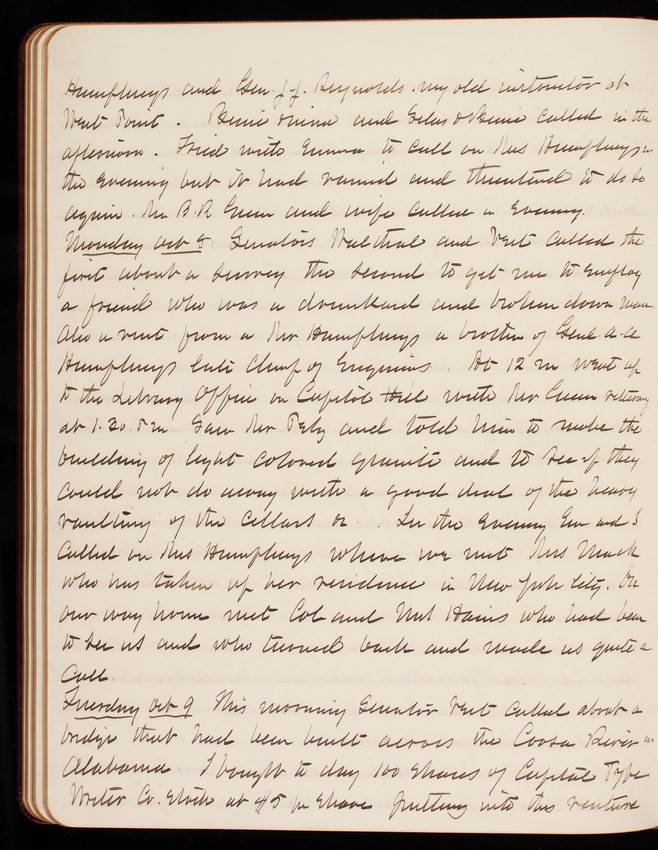 Humphreys and Gen. J.J. Reynolds my old instructor at
West Point. Bessie and called in the
afternoon. Tried with Emma to call on Mrs Humphreys in
the evening but it had rained and threatened to do so
again. Mr B.R. Green and wife called in Evening.
Monday Oct 8 Senators Walthal and Vest called the
first about a survey the second to get me to employ
a friend who was a drunkard and broken down man.
Also a visit from a Mr Humphreys a brother of Genl. A.A.
Humphreys late Chief of Engineers. At 12 m went up
to the Library Office on Capitol Hill with Mr Green returning
at 1.30 P m Saw Mr Pelz and told him to make the
building of light colored granite and to see if they
could not do away with a good deal of the heavy
vaulting of the cellars &c. In the Evening Em and I
called on Mrs Humphreys where we met Mrs Mack
who has taken up her residence in New York City. On
our way home met Col and Mrs Hains who had been
to see us and who turned back and made us quite a
call.
Tuesday Oct 9 This morning Senator Vest called about a
bridge that had been built across the Coosa River in
Alabama I bought to day 100 shares of Capitol Type
Writer Co. Stock at $5 per share putting into this venture